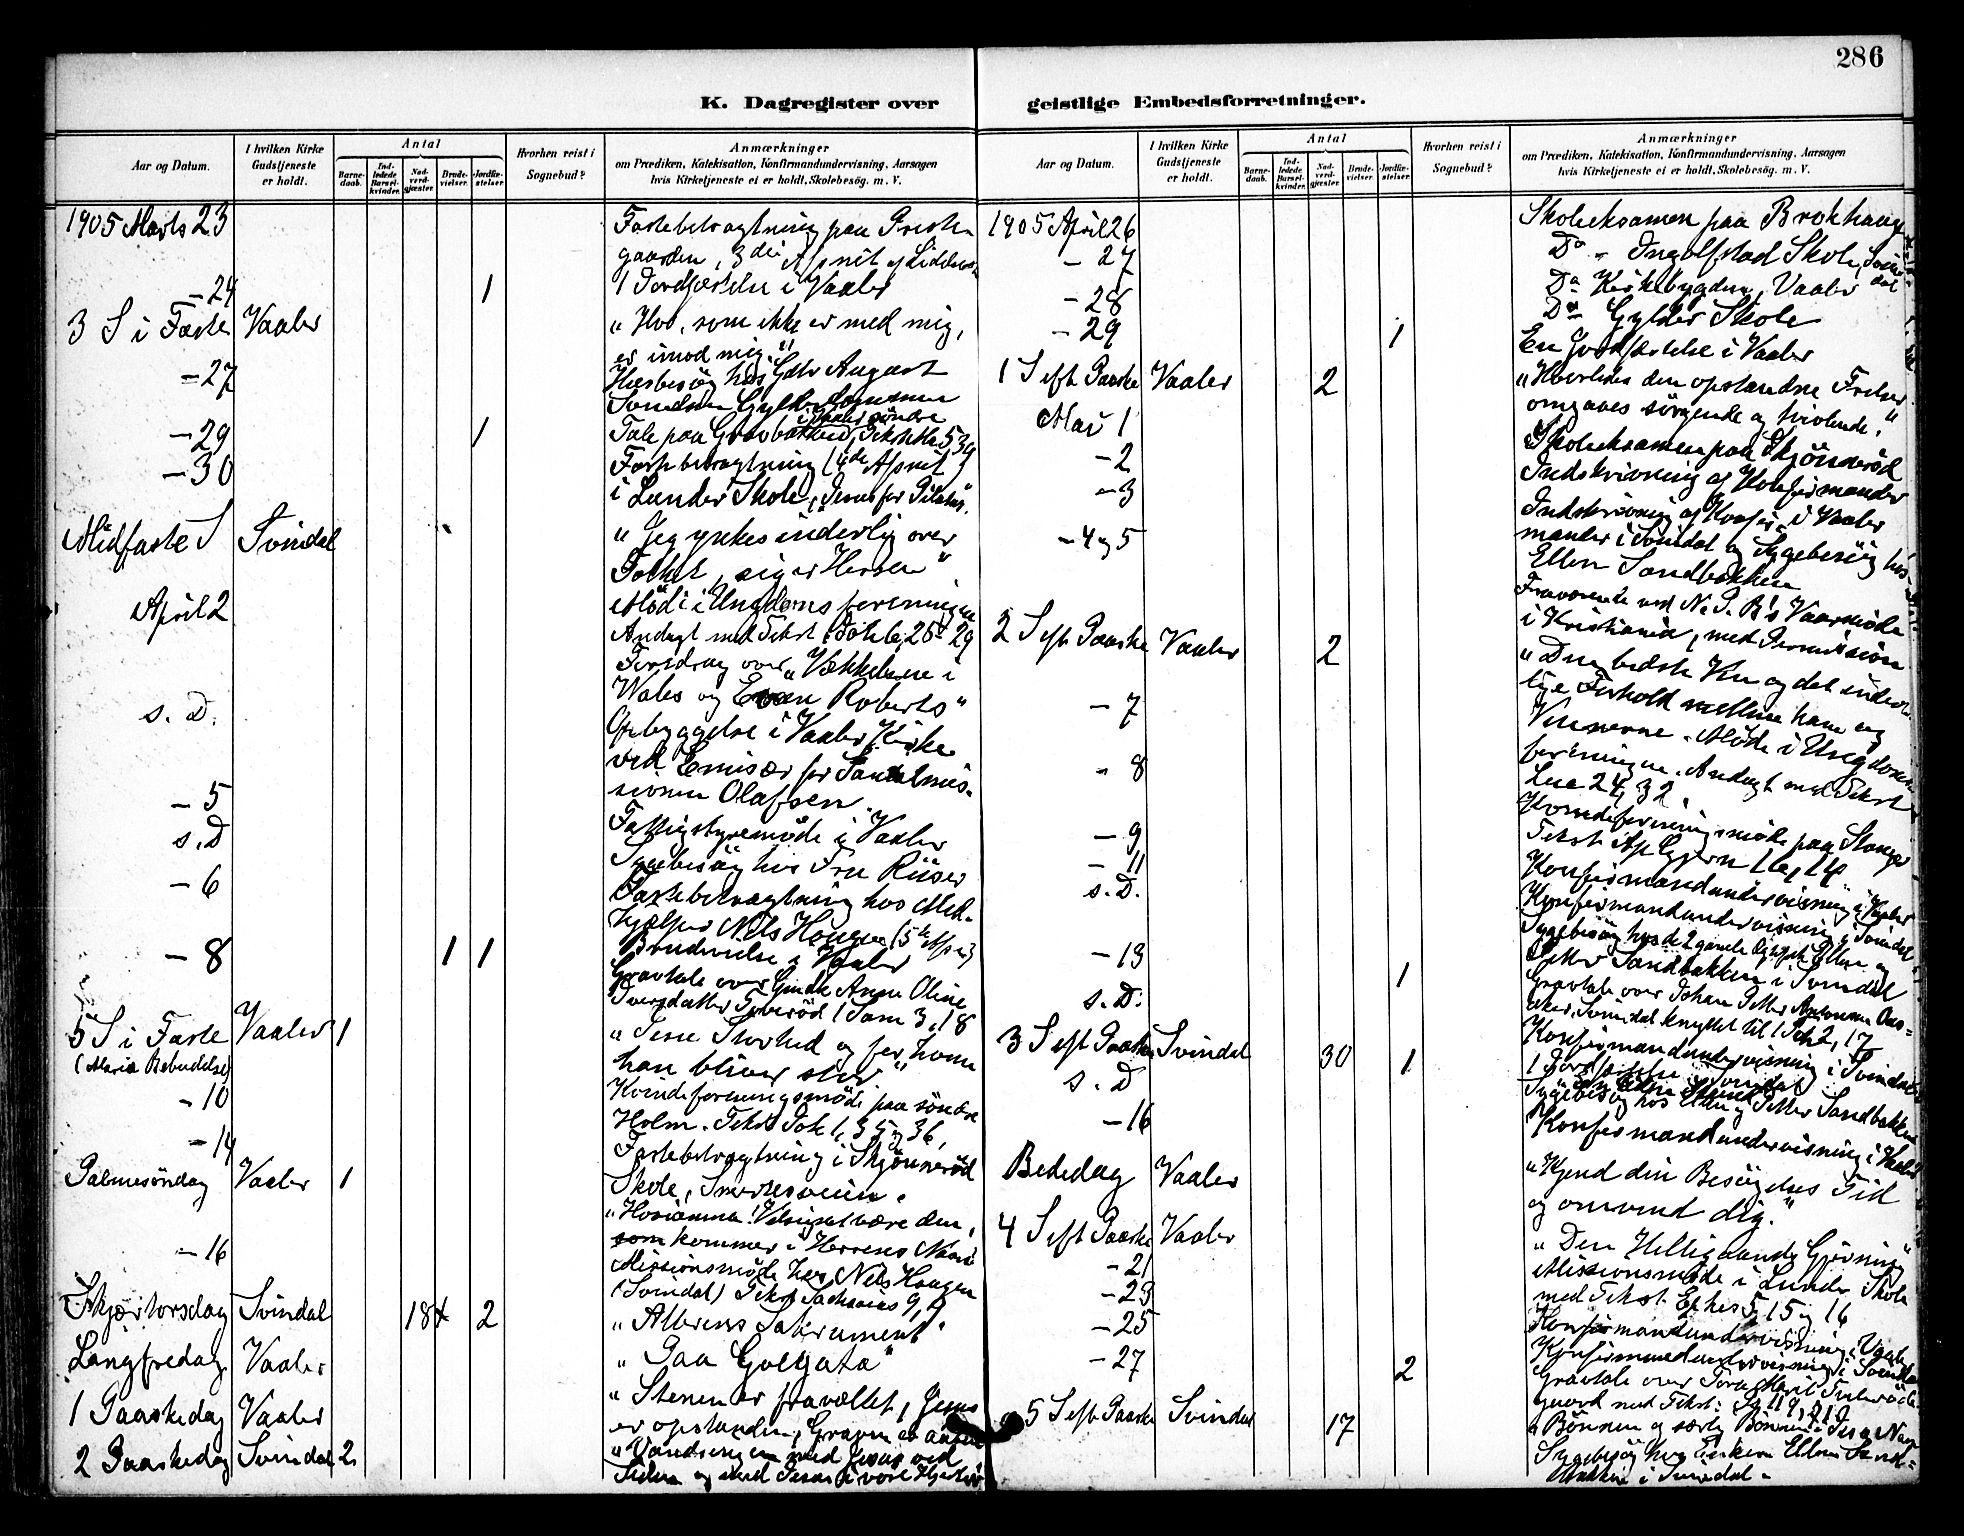 286
K. Dagregister over geistlige Embedsforretninger.
Aar og Datum. I hvilken Kirke Gudstjeneste er holdt. Antal Barnedaab. Indledede Barselkvinder. Nadverdgjæster Brudevielser. Jordfæstelser. Hvorhen reist i Sognebud? Anmærkninger om Prædiken, Katekisation, Konfirmandundervisning, Aarsagen hvis Kirketjeneste ei er holdt, Skolebesøg. m. V.
1905 Marts 23 Fastebetragtning paa Preste-
gaarden, 3die Afsnit af
- 24 1 1 Jordfæstelse i Vaaler
3 S i Faste Vaaler "Hvo, som ikke er med mig,
er imod mig."
- 27 Husbesøg hos Gdbr August
Svendsen Gylder
- 29 1 Tale paa Gravbakken i Vaaler søndre
- 30 Fastebetragtning (4de Afsnit)
i Lunder Skole, "Jesus for Pilatus".
Midfaste S Svindal "Jeg ynkes inderlig over
Folket, siger Herren"
April 2 Møde i Ungdomsforeningen
Andagt med Tekst Joh 6, 26-29
Foredrag over "Vækkelsene i
Wales og Evan Roberts"
s. D. Opbyggelse i Vaaler Kirke
ved Emisær for Santalmis-
sionen Olafsen
- 5 Fattigstyremøde i Vaaler
s. D Sygebesøg hos Fru Riiser
- 6 Fastebetragtning hos Med-
hjælper Nils Haugen (5te Afsn)
- 8 1 1 Brudevielse i Vaaler
Gravtale over Gmdk Anne Oline
Iversdatter 1 Sam 3, 18
5 S i Faste Vaaler 1 "Jesu Storhed og for hvem
(Mariæ Bebudelse) han bliver stor"
- 10 Kvindeforeningsmøde paa søndre
Holm. Tekst Joh 1, 35 og 36,
- 14 Fastebetragtning i Skjønnerød
Skole, Smertesveien.
Palmesøndag Vaaler 1 "Hosianna! Velsignet være den,
som kommer i Herrens Navn
- 16 Missionsmøde hos Nils Haugen
(Svindal) Tekst Sacharias 9, 9
Skjærtorsdag Svindal 18 2 "Alterens Sakrament"
Langfredag Vaaler "Paa Golgata"
1 Paaskedag Vaaler "Stenen er fravæltet, Jesus
er opstanden, Graven er aaben
2 Paaskedag Svindal 2 "Vandringen med Jesus ved
Siden og med Jesus i vore Hjerter
Aar og Datum. I hvilken Kirke Gudstjeneste er holdt. Antal Barnedaab. Indledede Barselkvinder. Nadverdgjæster Brudevielser. Jordfæstelser. Hvorhen reist i Sognebud? Anmærkninger om Prædiken, Katekisation, Konfirmandundervisning, Aarsagen hvis Kirketjeneste ei er holdt, Skolebesøg. m. V.
1905 April 26 Skoleeksamen paa Brokhaug
- 27 Do " Ingolfstad Skole, Svindal
- 28 Do Kirkebygden, Vaaler
- 29 1 Do Gylder Skole
En Jordfæstelse i Vaaler
1 S eft Paaske Vaaler 2 "Hvorledes den opstandne Frelser
omgaaes sørgende og tvivlende."
Mai 1 Skoleeksamen paa Skjønnerød
- 2 Indskrivning af Konfirmander
- 3 i Vaaler
- 4 og 5 Indskrivning af Konfir-
mander i Svindal og Sygebesøg hos
Ellen Sandbakken
Fraværende ved N. P. F.'s Vaarmøde
i Kristiania, med Permission
2 S eft Paaske Vaaler 2 "Den bedste Ven og det inder-
lige Forhold mellem ham og
- 7 Vennerne. Møde i Ungdoms-
foreningen. Andagt med Tekst
Luc 24, 32
- 8 Kvindeforeningsmøde paa Stanger
Tekst Ap Gjern 16, 14
- 9 Konfirmandundervisning i Vaaler
- 11 Konfirmandundervisning i Svindal
s. D. Sygebesøg hos de 2 gamle Ellen og
Petter Sandbakken i Svindal
- 13 1 Gravtale over Johan Petter Antonsen Aas-
aker, Svindal knyttet til 1 Pet 2, 17
s. D. Konfirmandundervisning i Svindal
3 S eft Paaske Svindal 30 1 1 Jordfæstelse i Svindal
s. D Sygebesøg hos Ellen og Petter Sandbakken
- 16 Konfirmandundervisning i Vaaler
Bededag Vaaler "Kjend din Besøgelses Tid
og omvend dig."
4 S eft Paaske Vaaler "Den Helligaands Gjerning"
- 21 Missionsmøde i Lunder Skole
med Tekst Efes 5, 15 og 16
- 23 Konfirmandundervisning i Vaaler
- 25 Konfirmandundervisning i Svindal
- 27 2 Gravtale over
gaard med Tekst:
5 S eft Paaske Svindal 17 "Bønnen og særlig Bønnen i Jesu Navn
Sygebesøg hos Enken Ellen Sand-
bakken i Svindal.